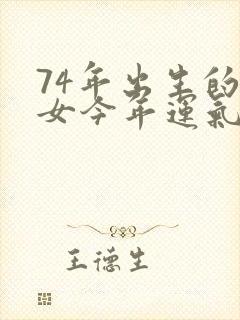 74年出生的
女今年運氣
王德生